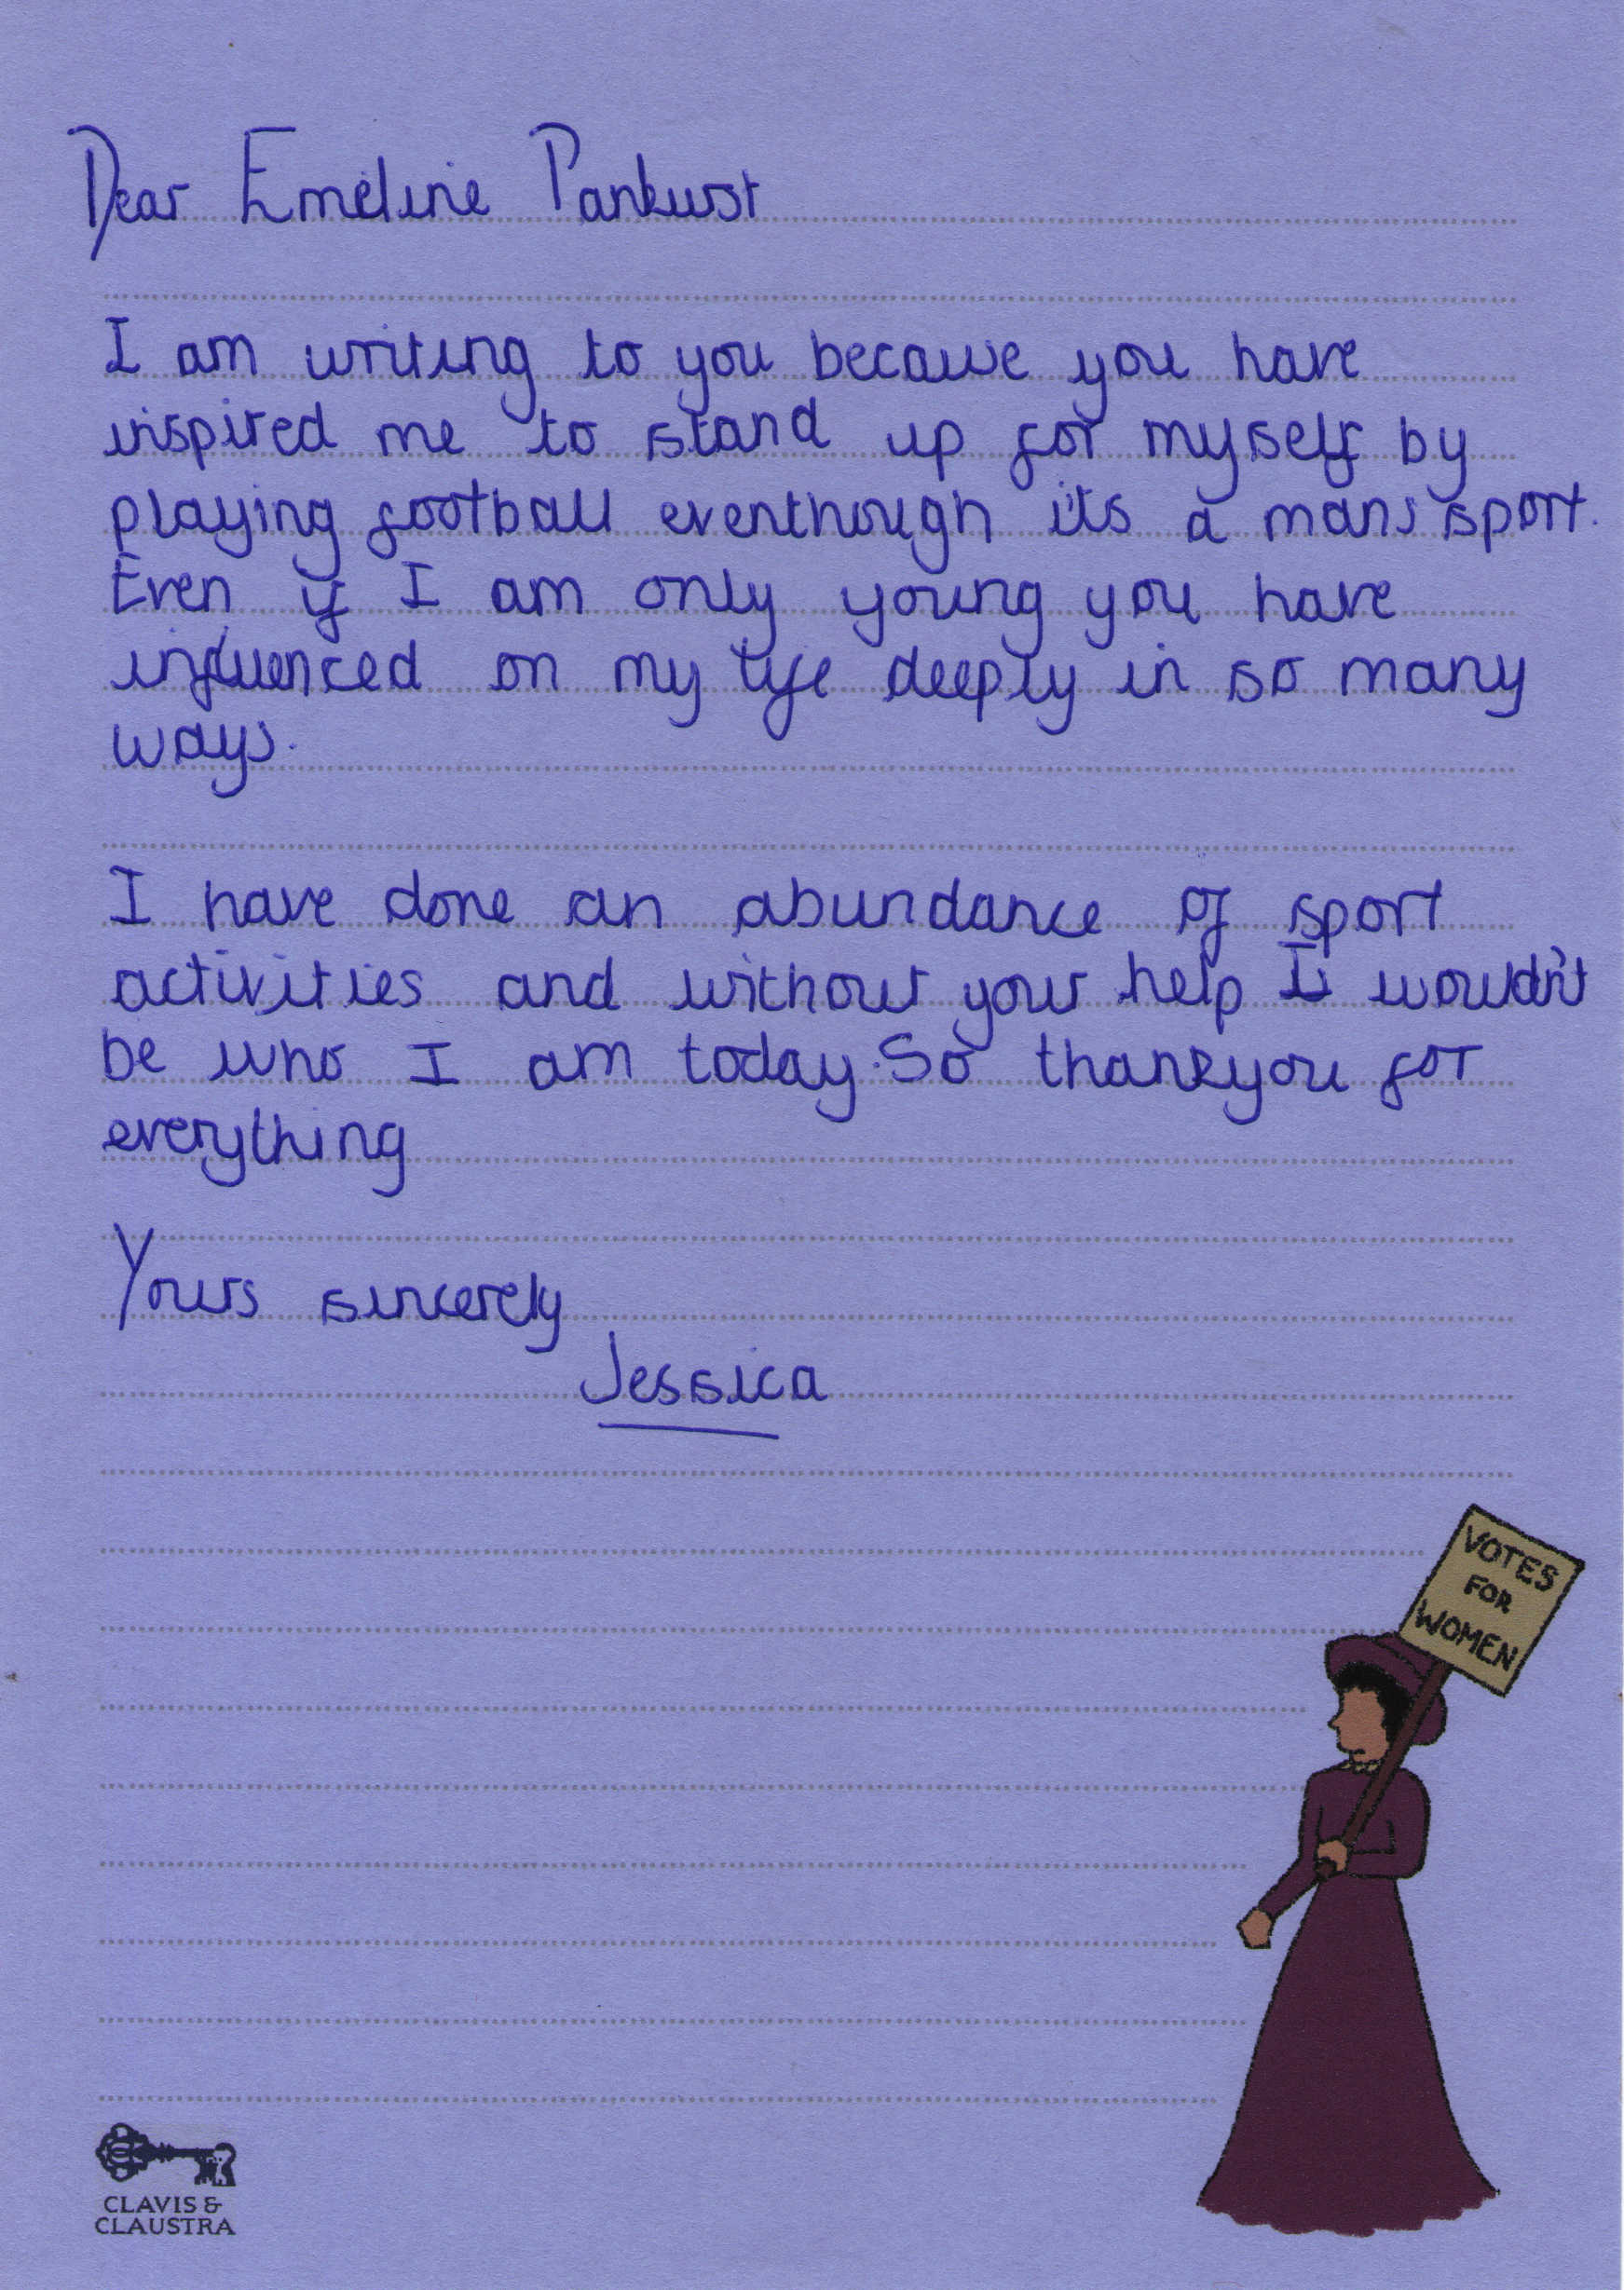 Dear Emeline Pankurst
I am writing to you because you have
inspired me to stand up for myself by
playing football eventhough its a mans sport.
Even if I am only young you have
influenced on my life deeply in so many
ways.
I have done an abundance of sport
activities and without your help I wouldn't
be who I am today. So thankyou for
everything
Yours sincerely
Jessica
VOTES
FOR
WOMEN
CLAVIS &
CLAUSTRA